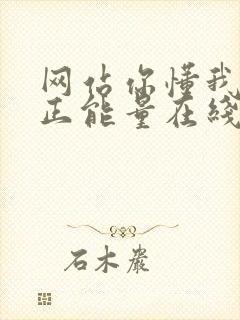 网站你懂我
正能量在线
石木岩